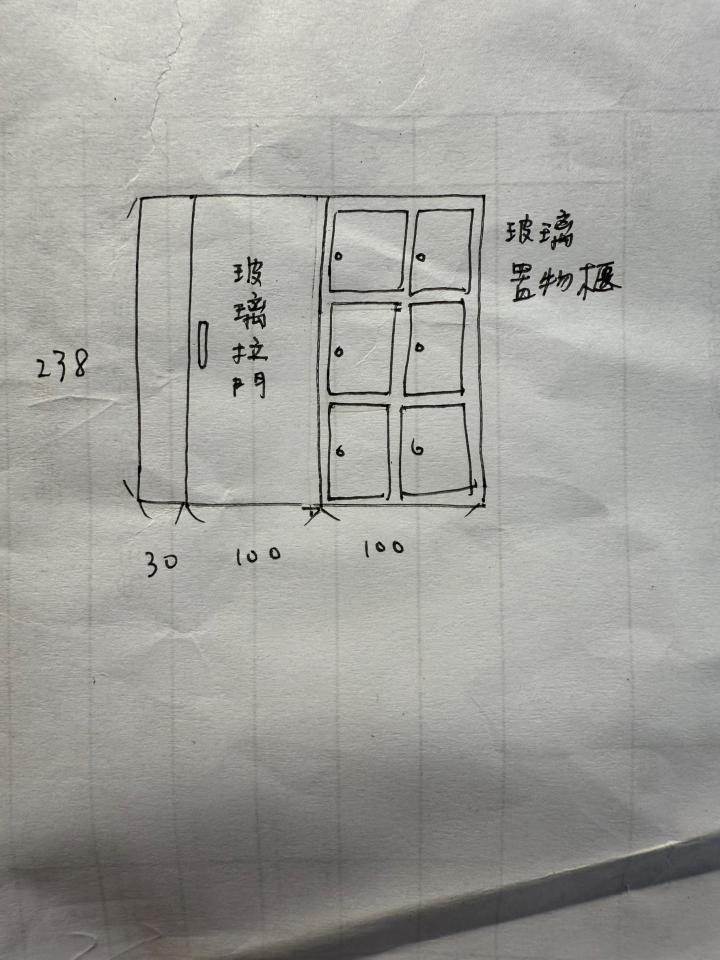 玻璃
置物櫃
玻
璃
拉
門
238
30 100 100